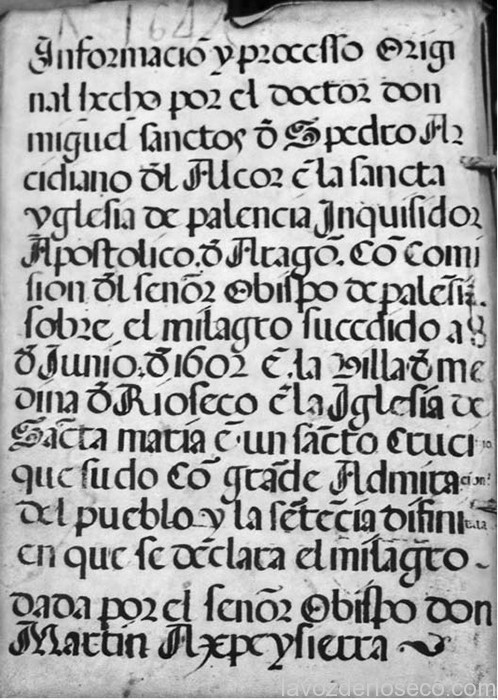 N 1642
Informacio᷈ y processo Origi
nal hecho por el doctor don
miguel sanctos đ S pedro Ar
cidiano đl Alcor e᷈ la sancta
yglesia de palencia Inquisidor
Apostolico. đ Arago᷈. Co᷈ Comi
sion đl señor Obispo de pale᷈ti᷈.
sobre, el milagro succdido a 8
đ Junio, đ 1602 e᷈. la villa đ me
dina đ Rioseco e᷈ la Iglesia de
Sa᷈cta maria e᷈. un sa᷈cto Cruci
que sudo Co᷈ gra᷈de Admiracion:
del pueblo y la se᷈te᷈cia difinitiva
en que se declara el milagro -
dada por el señor Obispo don
Martin Axpe y sierra ~
lavozderioseco.com